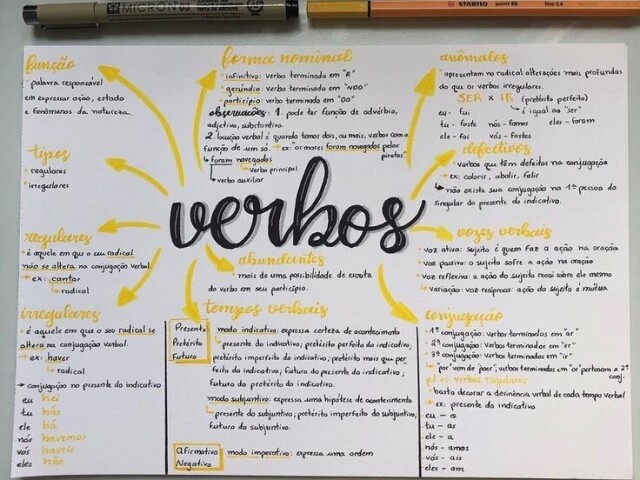 MICRON 08
STABILO point 88 fine 0,4
função
• palavra responsável
em expressar ação, estado
e fenômenos da natureza.
tipos
• regulares
• irregulares
regulares
• é aquele em que o seu radical
não se altera na conjugação verbal.
ex: cantar
radical
irregulares
• é aquele em que o seu radical se
altera na conjugação verbal.
ex: haver
radical
→ conjugação no presente do indicativo
eu hei
tu hás
ele há
nós havemos
vós haveis
eles hão
forma nominal
• infinitivo: verbo terminado em "R"
• gerúndio: verbo terminado em "NDO"
• particípio: verbo terminado em "DO"
observações: 1. pode ter função de advérbio,
adjetivo, substantivo.
2. locução verbal é quando temos dois, ou mais, verbos com a
função de um só. → ex: "or mares foram navegados pelos
piratas".
foram navegados
verbo principal
verbo auxiliar
verbos
abundantes
• mais de uma possibilidade de escrita
do verbo em seu particípio.
tempos verbais
Presente
Pretérito
Futuro
modo indicativo: expressa certeza do acontecimento
presente do indicativo; pretérito perfeito do indicativo;
pretérito imperfeito do indicativo; pretérito mais que per
feito do indicativo; futuro do presente do indicativo;
futuro do pretérito do indicativo.
modo subjuntivo: expressa uma hipótese do acontecimento
presente do subjuntivo; pretérito imperfeito do subjuntivo;
futuro do subjuntivo.
Afirmativo
Negativo
modo imperativo: expressa uma ordem
anômalos
• apresentam no radical alterações mais profundas
do que os verbos irregulares.
SER x IR (pretérito perfeito)
é igual ao "ser"
eu - fui
tu - foste nós - fomos eles - foram
ele - foi vós - fostes
defectivos
• verbos que têm defeitos na conjugação
ex: colorir, abolir, falir
não existe sua conjugação na 1ª pessoa do
singular do presente do indicativo.
vozes verbais
• voz ativa: sujeito é quem faz a ação na oração
• voz passiva: o sujeito sofre a ação na oração
• voz reflexiva: a ação do sujeito recai sobre ele mesmo
variação: voz recíproca: ação do sujeito é mútua
conjugação
• 1ª conjugação: verbos terminados em "ar"
• 2ª conjugação: verbos terminados em "er"
• 3ª conjugação: verbos terminados em "ir"
"por vem de poer", verbos terminados em "or" pertencem a 2ª
conj.
p/ os verbos regulares
• basta decorar a desinência verbal de cada tempo verbal
ex: presente do indicativo
eu - o
tu - as
ele - a
nós - amos
vós - ais
eles - am